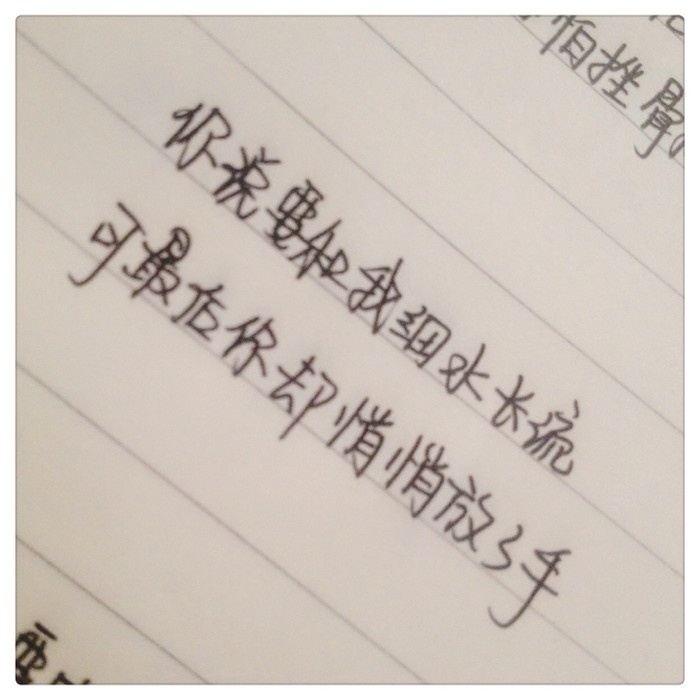 怕挫骨
你说要和我细水长流
可最后你却悄悄放了手